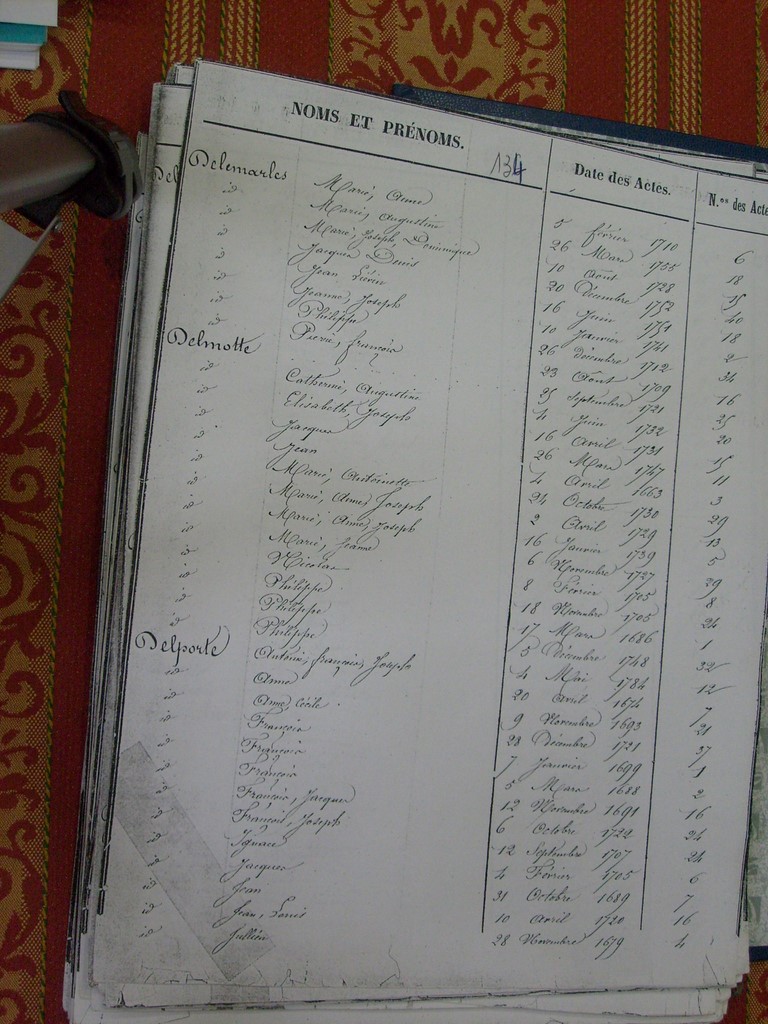 NOMS ET PRÉNOMS. 134 Date des Actes. N.os des Actes
Del
Delemarles Marie, Anne 5 février 1710 6
id Marie, Augustin 26 Mars 1755 18
id Marie, Joseph Dominique 10 Août 1728 15
id Jacques Denis 20 Décembre 1752 40
id Jean Liévin 16 Juin 1751 18
id Jeanne, Joseph 10 Janvier 1741 2
id Philippe 26 décembre 1712 34
id Pierre, françois 23 Août 1709 16
Delmotte 25 Septembre 1721 25
id Catherine, Augustine 4 Juin 1732 20
id Elisabeth, Joseph 16 Avril 1731 15
id Jacques 26 Mars 1747 11
id Jean 4 Avril 1663 3
id Marie, Antoinette 24 Octobre 1730 29
id Marie, Anne, Joseph 2 Avril 1729 13
id Marie, Anne, Joseph 16 Janvier 1739 5
id Marie, Jeanne 6 Novembre 1727 29
id Nicolas 8 Février 1705 8
id Philippe 18 Novembre 1705 24
id Philippe 17 Mars 1686 1
id Philippe 5 Décembre 1748 32
Delporte Antoine, françois, Joseph 4 Mai 1784 12
id Anne 20 Avril 1674 7
id Anne, Cécile 9 Novembre 1693 21
id François 23 Décembre 1721 37
id François 7 Janvier 1699 1
id François 5 Mars 1688 2
id François, Jacques 12 Novembre 1691 16
id François, Joseph 6 Octobre 1722 24
id Ignace 12 Septembre 1707 24
id Jacques 4 Février 1705 6
id Jean 31 Octobre 1689 7
id Jean, Louis 10 Avril 1720 16
id Jullien 28 Novembre 1679 4